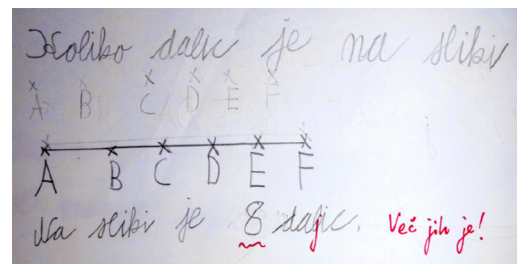 Koliko dalic je na sliki
A B C D E F
A B C D E F
Na sliki je 8 daljic. Več jih je!